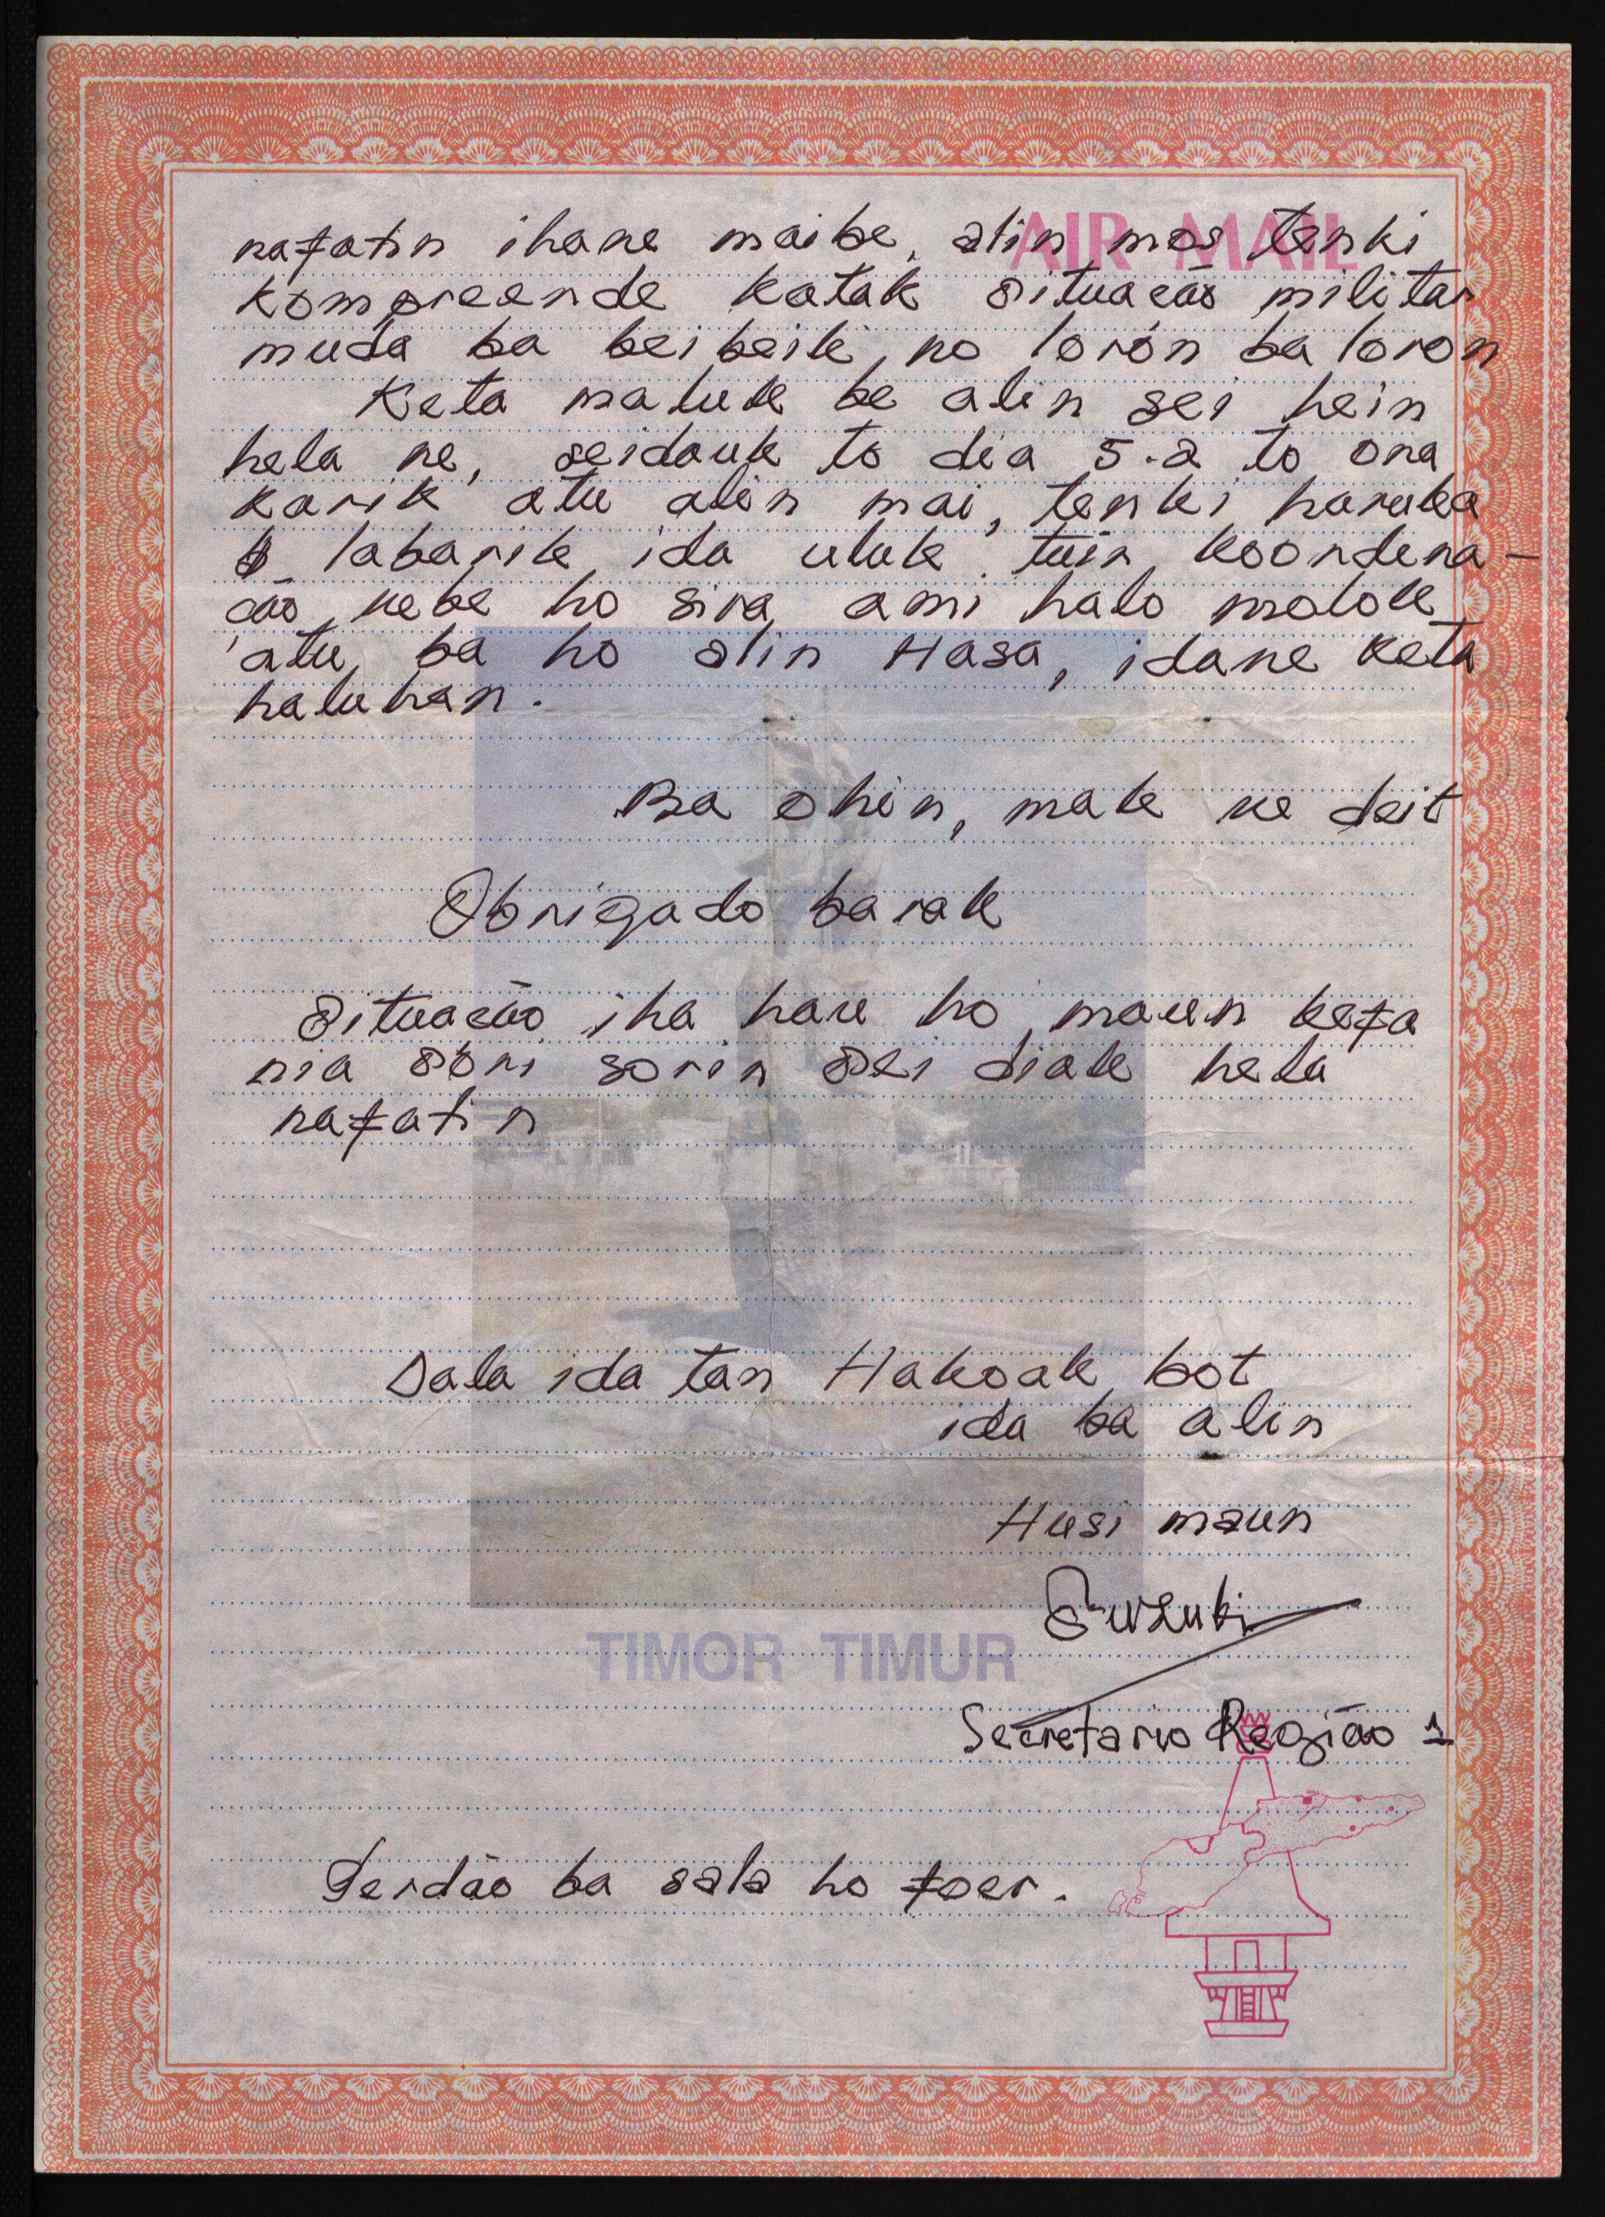 AIR MAIL
nafatin ihane maibe, alin mos tenki
kompreende katak situacão militar
muda ba beibeik, no loron ba loron
Keta maluk be alin sei hein
hela ne, seidauk to dia 5.2 to ona
karik atu alin mai, tenki haruka
labarik ida uluk tuir koordena-
cão nebe ho sira ami halo molok
atu ba ho alin Hasa, idane keta
haluhan.
Ba ohin, mak ne deit
Obrigado barak
Situacão iha hau ho maun kefa
nia sorin sei diak hela
nafatin
Dala ida tan Hakoak bot
ida ba alin
Husi maun
Suzuki
TIMOR TIMUR
Secretario Região 1
Perdão ba sala ho foer.